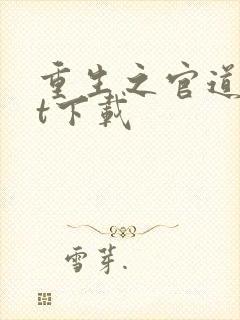 重生之官道
t下载
雪芽.